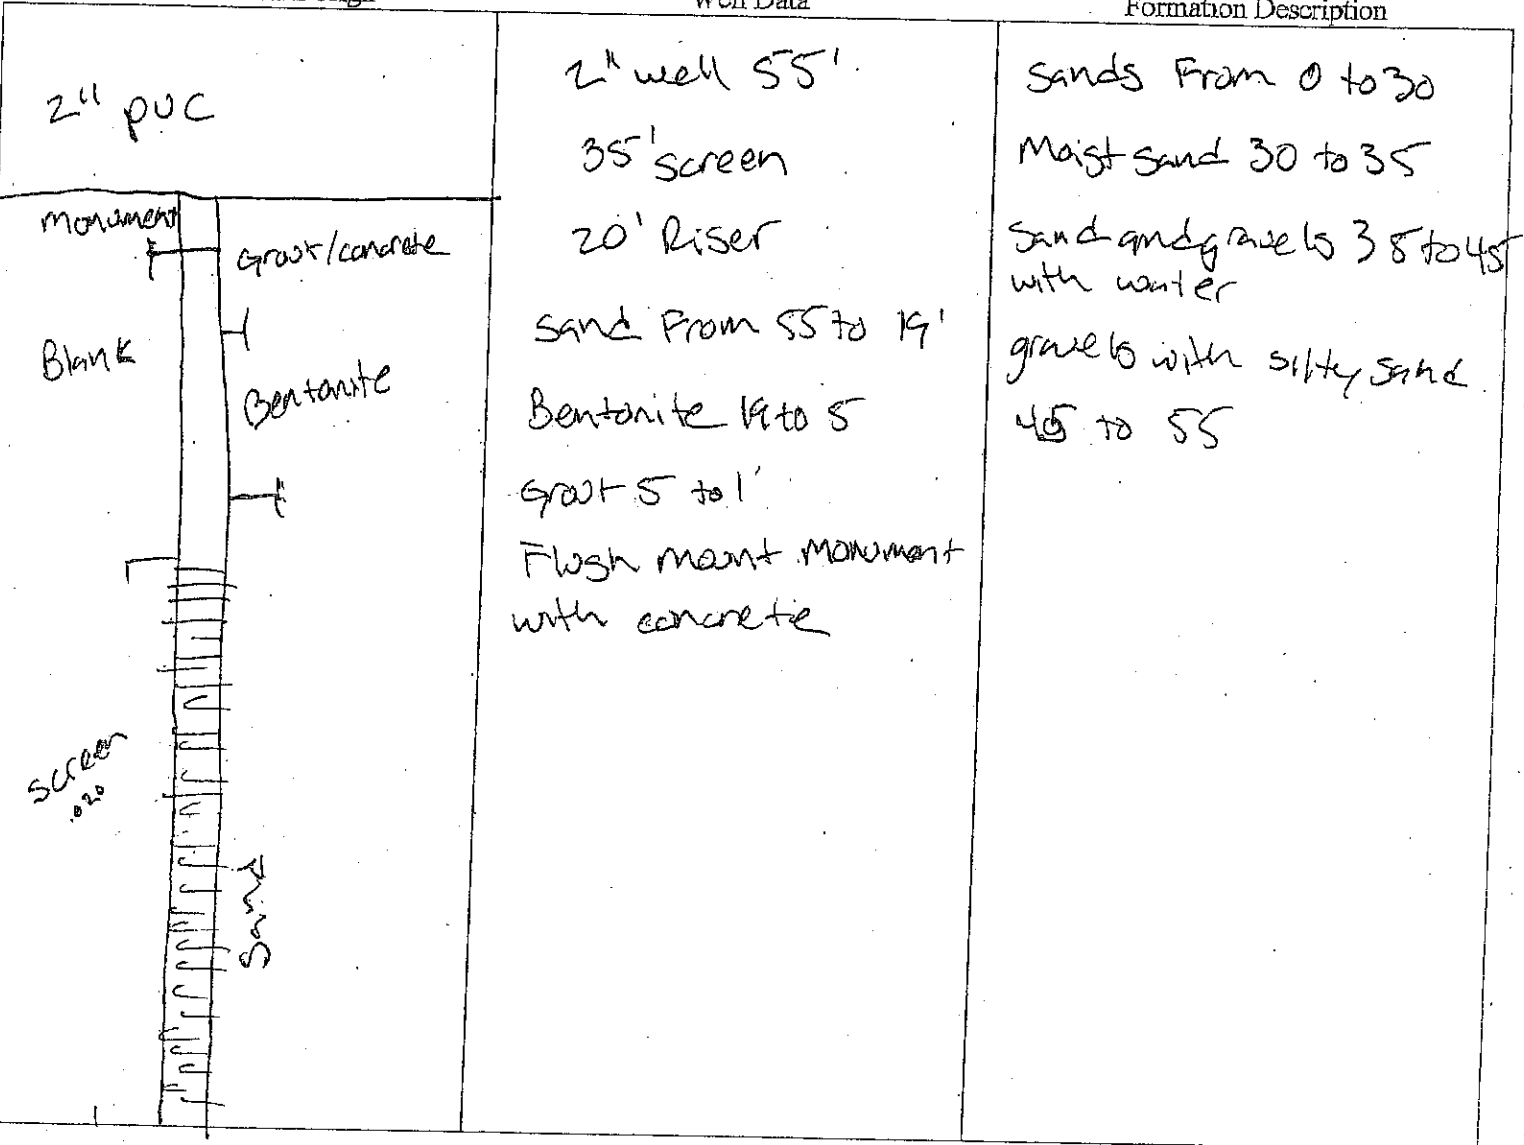 Well Data
Formation Description
2" PVC
monument
Grout/concrete
Blank
Bentonite
screen
.020
Sand
2" well 55'
35' screen
20' Riser
sand From 55 to 19'
Bentonite 19 to 5
Grout 5 to 1'
Flush mount monument
with concrete
Sands From 0 to 30
Moist sand 30 to 35
Sand and gravels 35 to 45
with water
gravels with silty sand
45 to 55